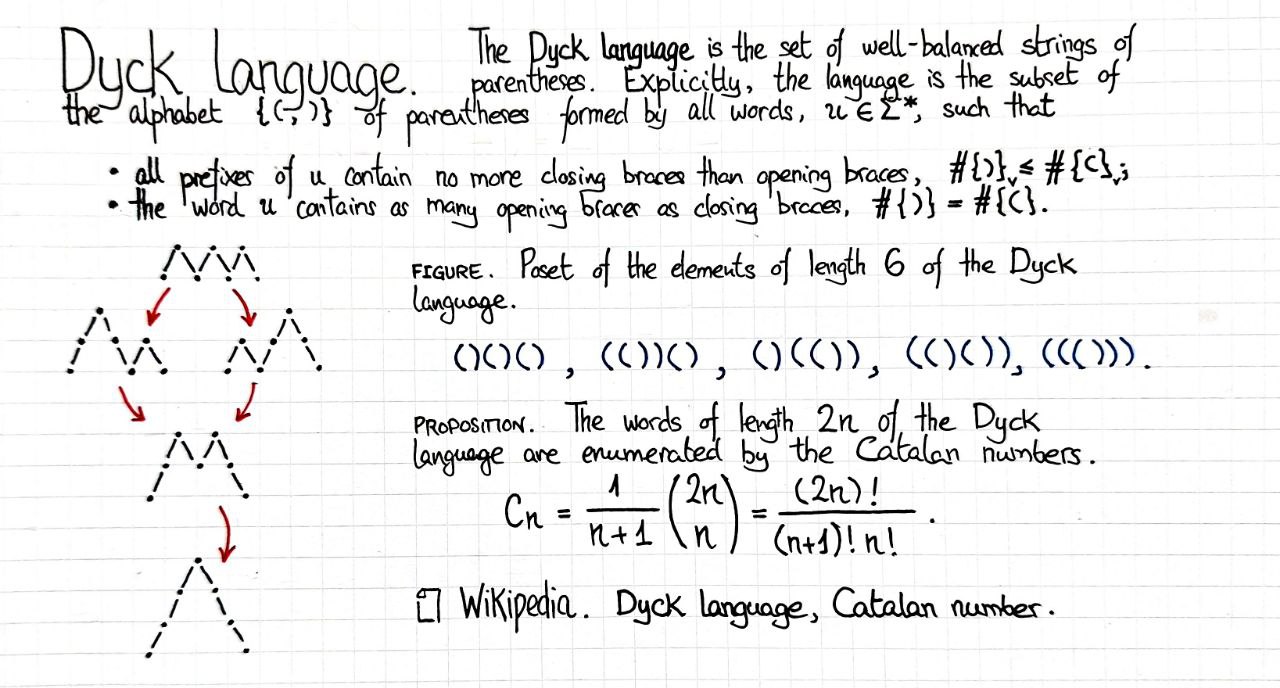 Dyck Language. The Dyck language is the set of well-balanced strings of
parentheses. Explicitly, the language is the subset of
the alphabet {(, )} of parentheses formed by all words, u ∈ Σ*, such that
• all prefixes of u contain no more closing braces than opening braces, #{)}ᵥ ≤ #{(}ᵥ;
• the word u contains as many opening braces as closing braces, #{)} = #{(}.
FIGURE. Poset of the elements of length 6 of the Dyck
language.
()()(), (())(), ()(()), (()()), ((())).
PROPOSITION. The words of length 2n of the Dyck
language are enumerated by the Catalan numbers.
Cₙ = 1/(n+1) (2n n) = (2n)!/((n+1)! n!).
Wikipedia. Dyck language, Catalan number.